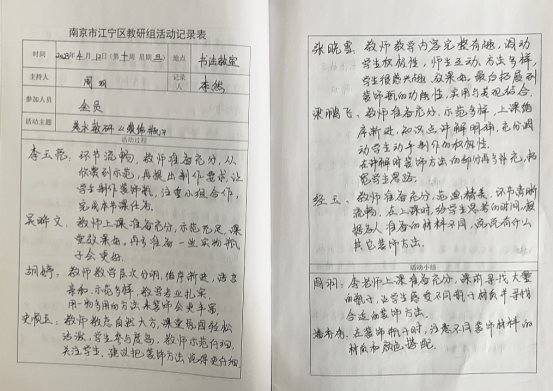 南京市江宁区教研组活动记录表
时间 2023年4月12日（第十周 星期三） 地点 书法教室
主持人 周羽 记录人 李然
参加人员 全员
活动主题 美术教研《装饰瓶》
活动过程
李玉亮，环节流畅，教师准备充分，从
欣赏到示范，再提出制作要求，让
学生制作装饰瓶，注重小组合作，
完成本节课任务。
吴晔文，教师上课准备充分，示范充足，课
堂效果好，再多准备一些实物瓶
子会更好。
胡婷：教师教学层次分明，循序渐进，语言
亲和，示范多样，教学专业扎实，
用一物多用的方法来装饰会更丰富。
教师教态自然大方，课堂氛围轻松
活泼，学生参与度高，教师示范仔细，
关注学生，建议把装饰方法说得更仔细
张晓雪，教师教学内容完整有趣，调动
学生积极性，师生互动，方法多样，
学生很感兴趣，效果好，最后拓展到
装饰瓶的功能性，实用与美观结合。
梁鹏飞，教师准备充分，示范多样，上课循
序渐进，知识点讲解明确，充分调
动学生动手制作的积极性。
在讲解时装饰方法的部分再多补充，拓
宽学生思路。
教师准备充分，范画精美，环节清晰
流畅，在上课时，给学生思考的时间，根
据各人准备的材料不同，说说有什么
其它装饰方法。
活动小结
周羽：李老师上课准备充分，课前寻找大量
的瓶子，让学生感受不同瓶子材质并寻找
合适的装饰方法。
在装饰瓶子时，注意不同装饰材料的
材质和颜色搭配。